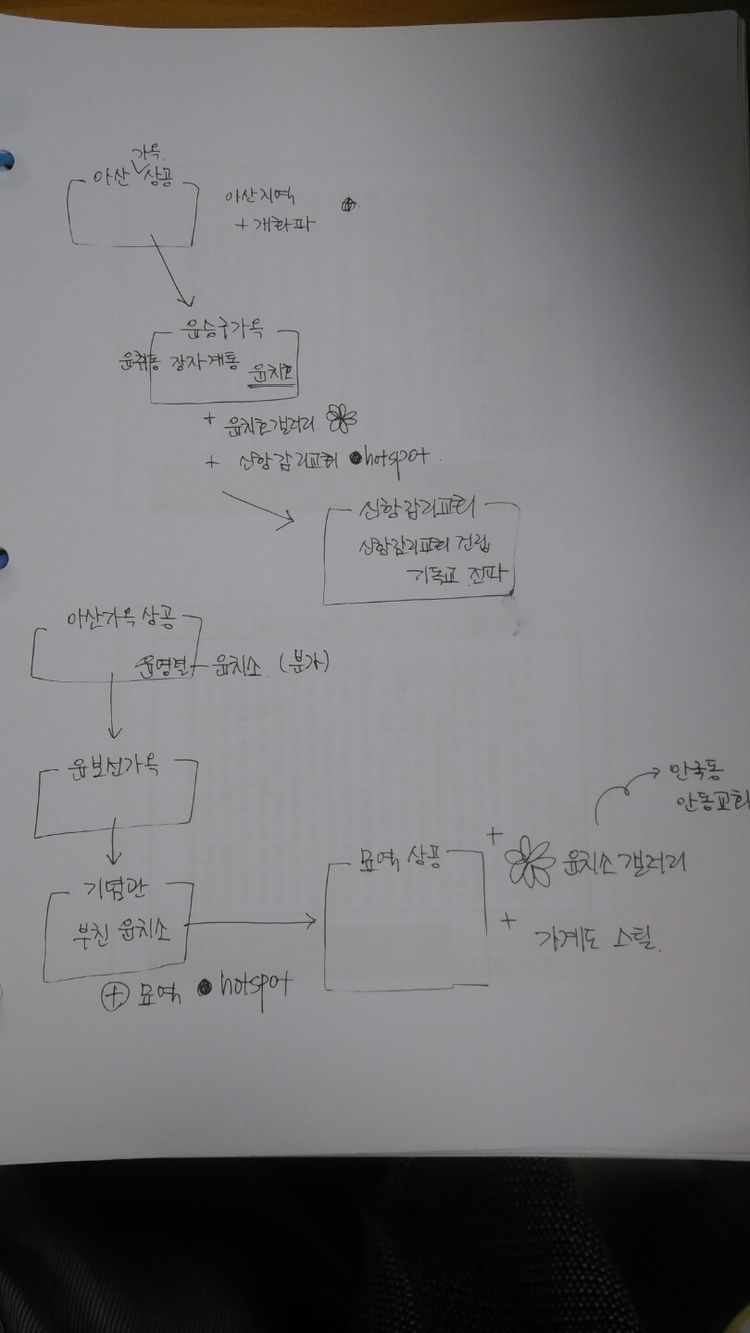 가옥
아산 상공
아산지역
+ 개화파
윤승구가옥
윤취동 장자계통 윤치호
+ 윤치호갤러리
+ 신항감리교회 hotspot
신항감리교회
신항감리교회 건립
기독교 전파
아산가옥 상공
윤영렬 - 윤치소 (분가)
윤보선가옥
안국동
안동교회
기념관
부친 윤치소
묘역 상공
+ 윤치소 갤러리
+ 가계도 스틸
+ 묘역 hotspot